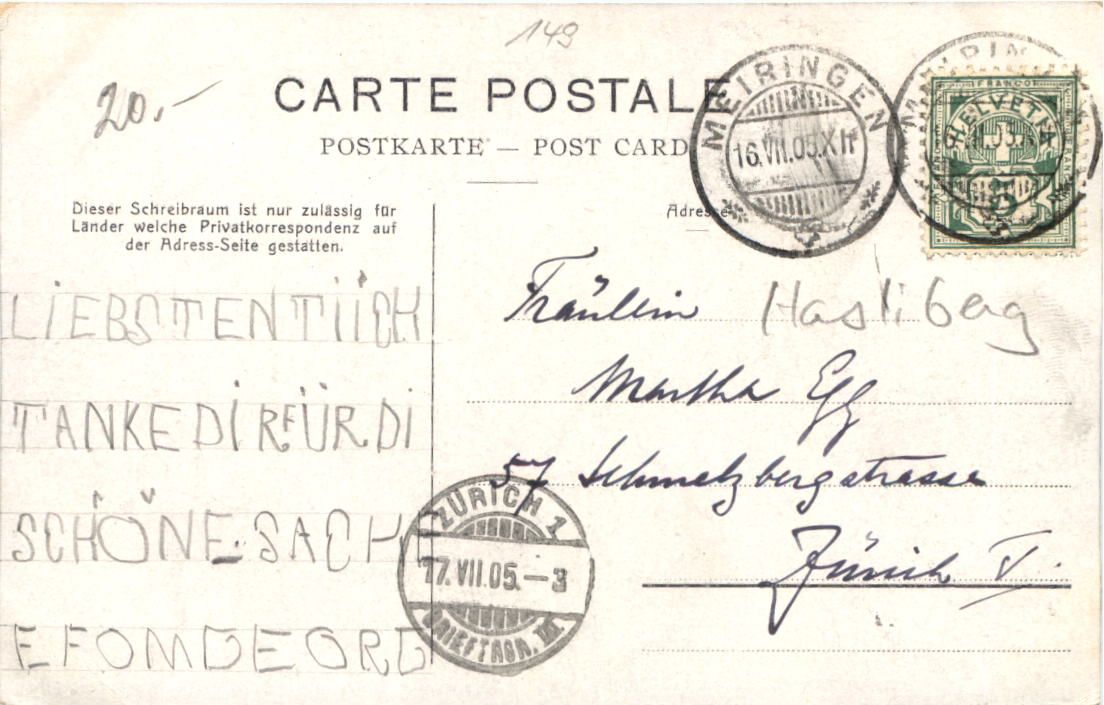 149
20.-
CARTE POSTALE
POSTKARTE — POST CARD
MEIRINGEN
16.VII.05.XII
FRANCO
HELVETIA
5
Adresse
Dieser Schreibraum ist nur zulässig für
Länder welche Privatkorrespondenz auf
der Adress-Seite gestatten.
LIEBSTENTIICH
TANKEDIRFÜRDI
SCHÖNE SACH
EFOMGEORG
Fräullein Hasliberg
Martha Egg
57 Schmelzbergstrasse
Zürich V.
ZÜRICH 1
17.VII.05.–3
BRIEFTRGR. III.